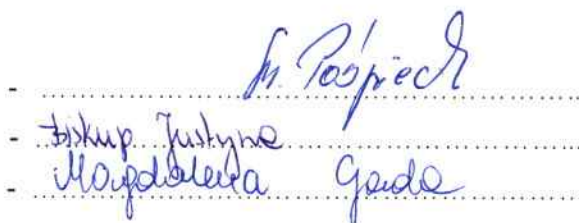 - Pośpiech
- Biskup Justyna
- Magdalena Gaida